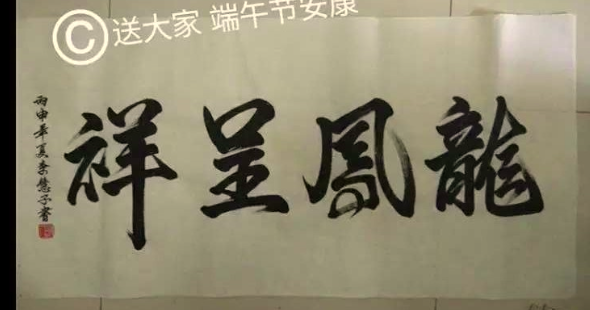 ©送大家 端午节安康
龍鳳呈祥
丙申年夏 子書